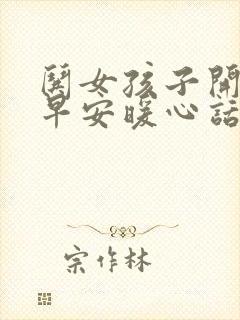 鬨女孩子開
早安暖心話
宗作林